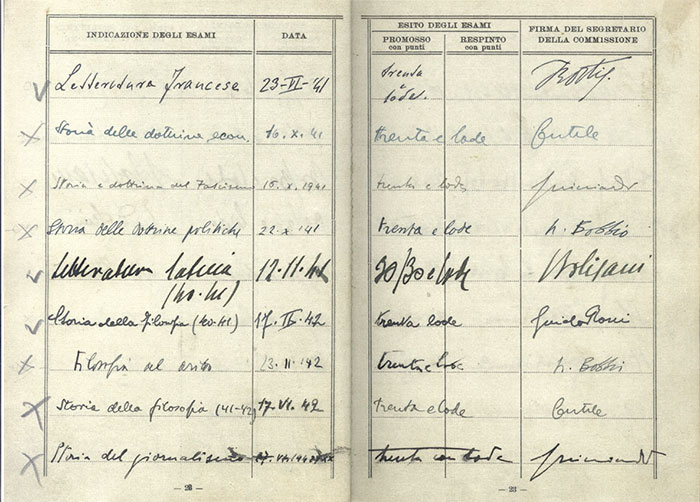 INDICAZIONE DEGLI ESAMI DATA ESITO DEGLI ESAMI FIRMA DEL SEGRETARIO DELLA COMMISSIONE
PROMOSSO con punti RESPINTO con punti
Letteratura Francese 23-VI-'41 trenta e lode.
Storia delle dottrine econ. 16.X.41 trenta e lode Gentile
Storia e dottrina del Fascismo 15.X.1941 trenta e lode
Storia delle dottrine politiche 22.X.'41 trenta e lode N. Bobbio
Letteratura latina (40-41) 12.11.41 30/30 e lode
Storia della Filosofia (40-41) 17.II.42 trenta lode Guido
Filosofia del 23.II.'42 trenta e lode N. Bobbio
Storia della filosofia (41-42) 17.VI.42 trenta e lode Gentile
Storia del giornalismo trenta con lode